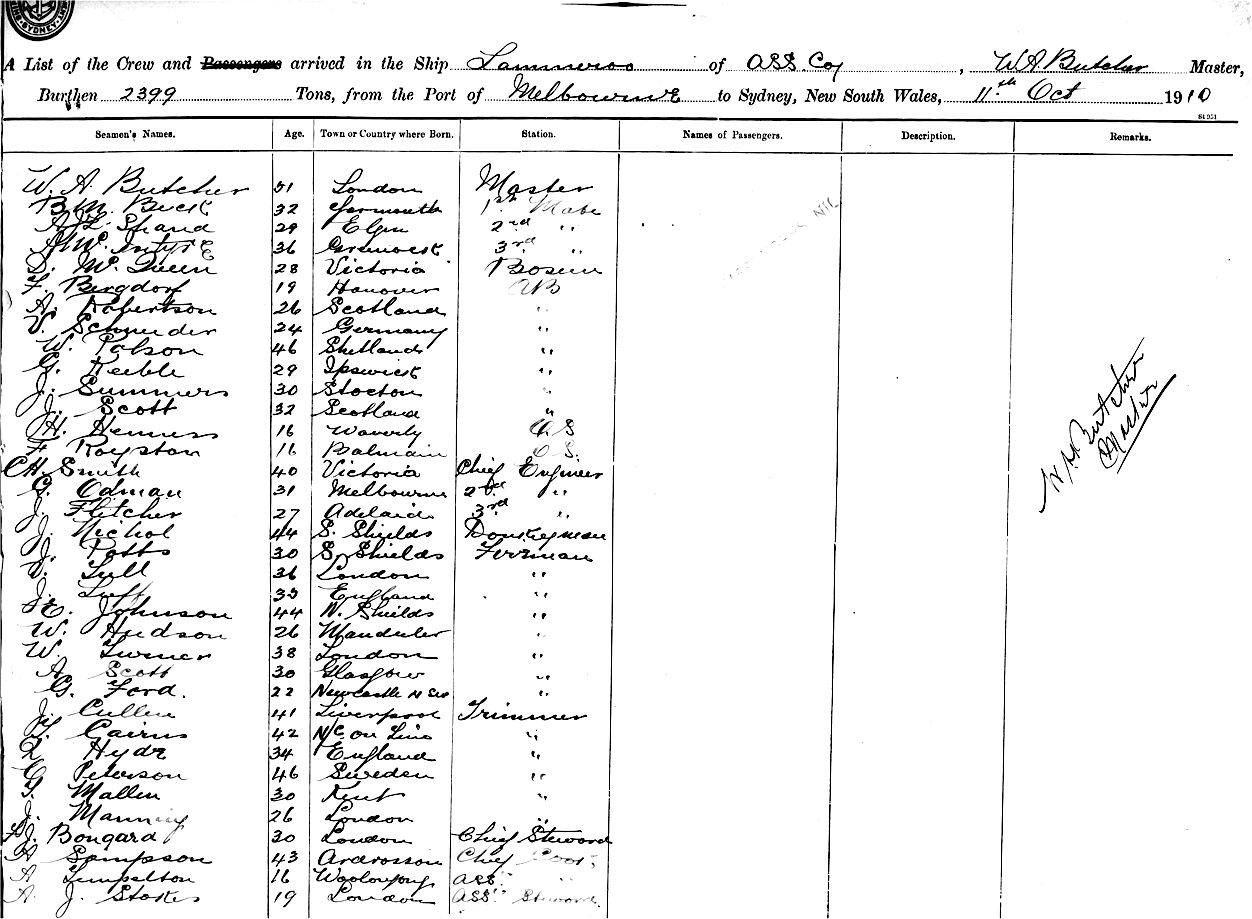 SYDNEY
A List of the Crew and Passengers arrived in the Ship Lammeroo of A.S.S. Coy, W A Butcher Master,
Burthen 2399 Tons, from the Port of Melbourne to Sydney, New South Wales, 11th Oct 1910
St 951
Seamen's Names. Age. Town or Country where Born. Station. Names of Passengers. Description. Remarks.
W. A. Butcher 51 London Master
B M Beck 32 Yarmouth 1st Mate
A. L. Shand 29 Elgin 2nd "
McIntyre 36 Greenock 3rd "
D. McQueen 28 Victoria Bosun
F. Bergdorf 19 Hanover AB
A. Robertson 26 Scotland "
V. Schneider 24 Germany "
W. Polson 46 Shetlands "
G. Keeble 29 Ipswick "
J. Summers 30 Stocton "
J. Scott 32 Scotland "
H. Henness 16 Waverly O S
F Royston 16 Balmain O S.
C H. Smith 40 Victoria Chief Engineer
G. Odman 31 Melbourne 2nd "
J. Fletcher 27 Adelaide 3rd "
J. Nichol 44 S. Shields Donkeyman
J. Potts 30 S. Shields Fireman
Tull 36 London "
J. Luff 33 England "
Johnson 44 N. Shields "
W. Hudson 26 "
W. Turner 38 London "
A Scott 30 Glasgow "
G. Ford. 22 Newcastle N SW "
J. Cullen 41 Liverpool Trimmer
Cairns 42 N/C on Tine "
Hyde 34 England "
C. Peterson 46 Sweden "
Mallen 30 Kent "
J. Manning 26 London "
J. Bongard 30 London Chief Steword
A Sampson 43 Ardrosson Chief Cook
A Tempelton 16 Woolongong ASS. "
A. J. Stokes 19 London ASS. Steword.
NIL
W A Butcher
Master